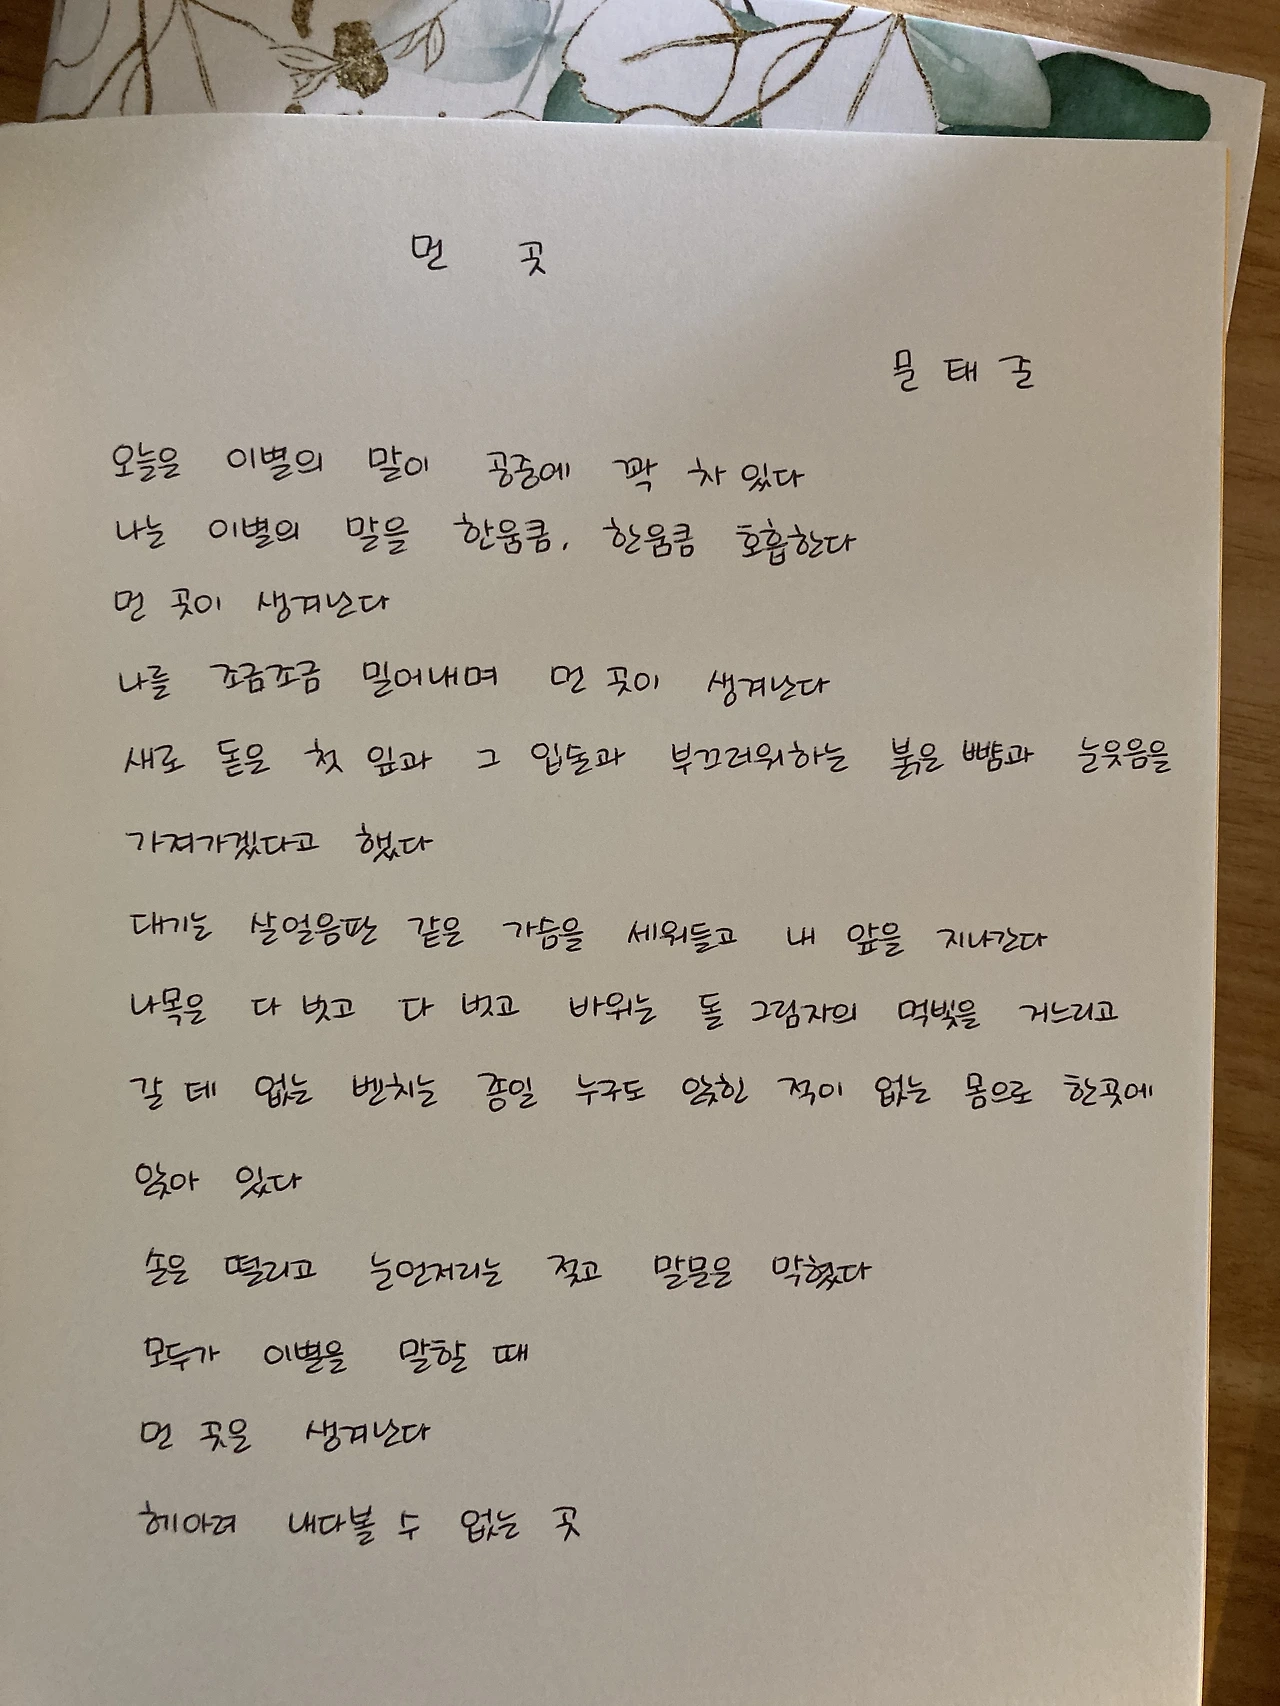 먼 곳
문태준
오늘은 이별의 말이 공중에 꽉 차 있다
나는 이별의 말을 한움큼, 한움큼 호흡한다
먼 곳이 생겨난다
나를 조금조금 밀어내며 먼 곳이 생겨난다
새로 돋은 첫 잎과 그 입술과 부끄러워하는 붉은 뺨과 눈웃음을
가져가겠다고 했다
대기는 살얼음판 같은 가슴을 세워들고 내 앞을 지나간다
나목은 다 벗고 다 벗고 바위는 돌 그림자의 먹빛을 거느리고
갈 데 없는 벤치는 종일 누구도 앉힌 적이 없는 몸으로 한곳에
앉아 있다
손은 떨리고 눈언저리는 젖고 말문은 막혔다
모두가 이별을 말할 때
먼 곳은 생겨난다
헤아려 내다볼 수 없는 곳